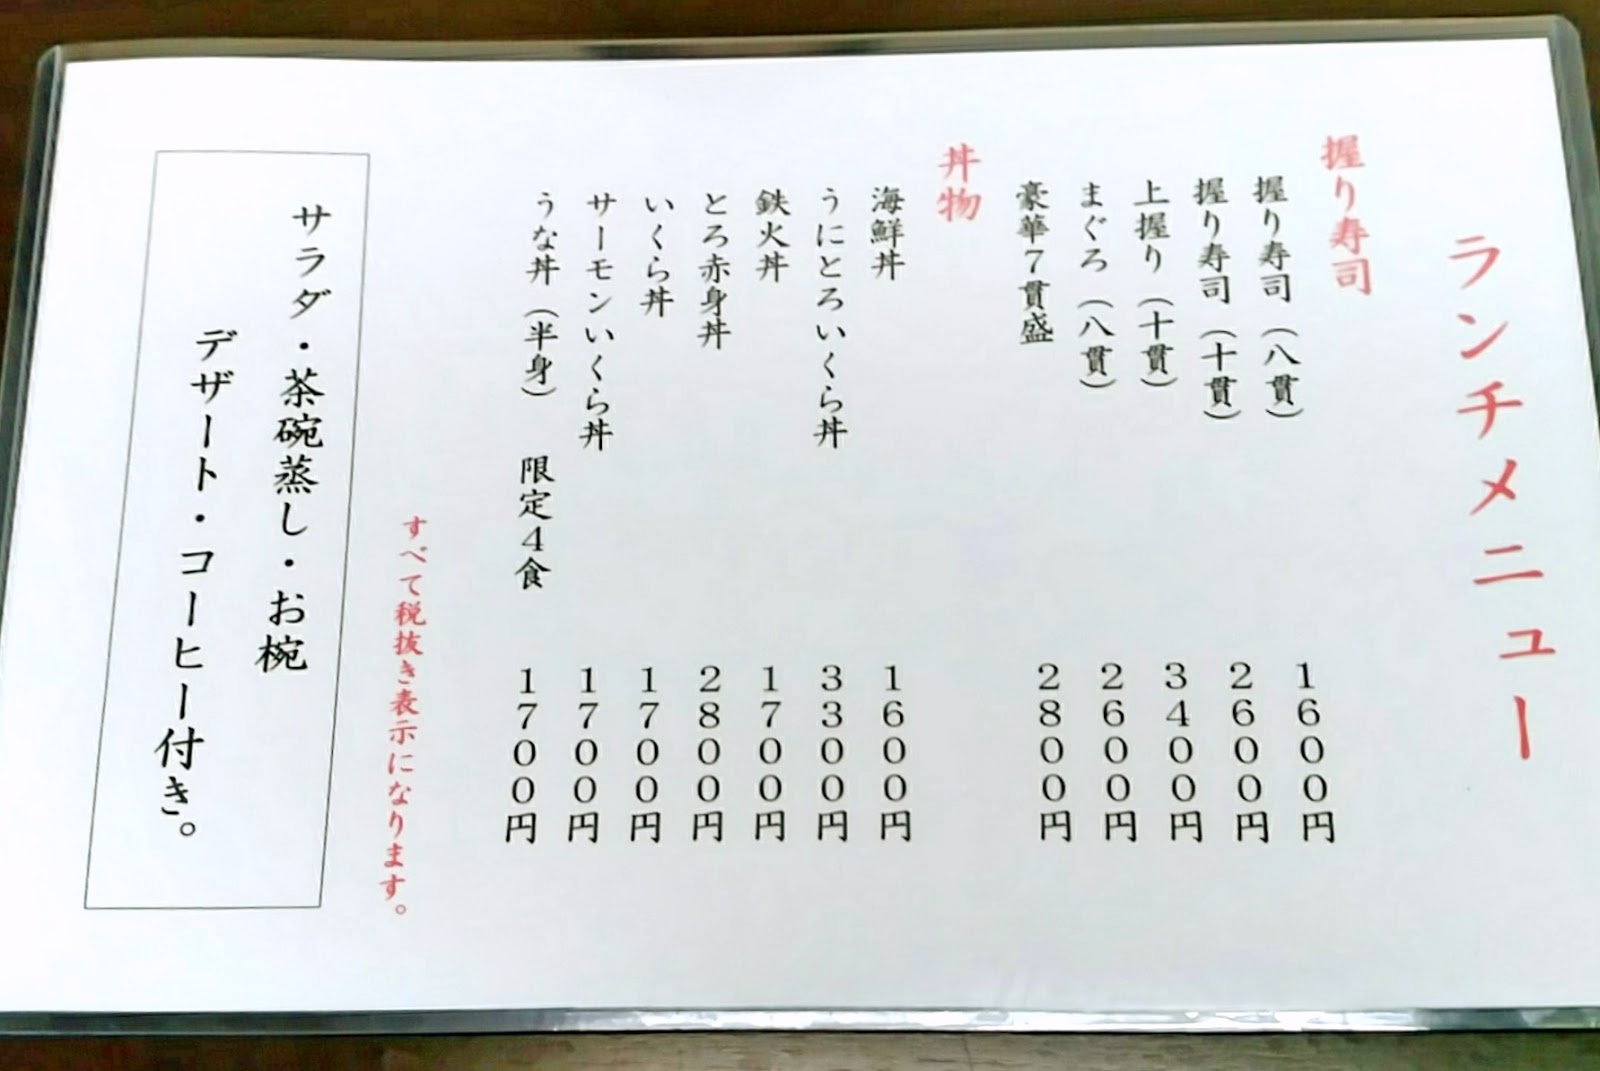 ランチメニュー
握り寿司
握り寿司（八貫） 1600円
握り寿司（十貫） 2600円
上握り（十貫） 3400円
まぐろ（八貫） 2600円
豪華7貫盛 2800円
丼物
海鮮丼 1600円
うにとろいくら丼 3300円
鉄火丼 1700円
とろ赤身丼 2800円
いくら丼 1700円
サーモンいくら丼 1700円
うな丼（半身） 限定4食 1700円
すべて税抜き表示になります。
サラダ・茶碗蒸し・お椀
デザート・コーヒー付き。